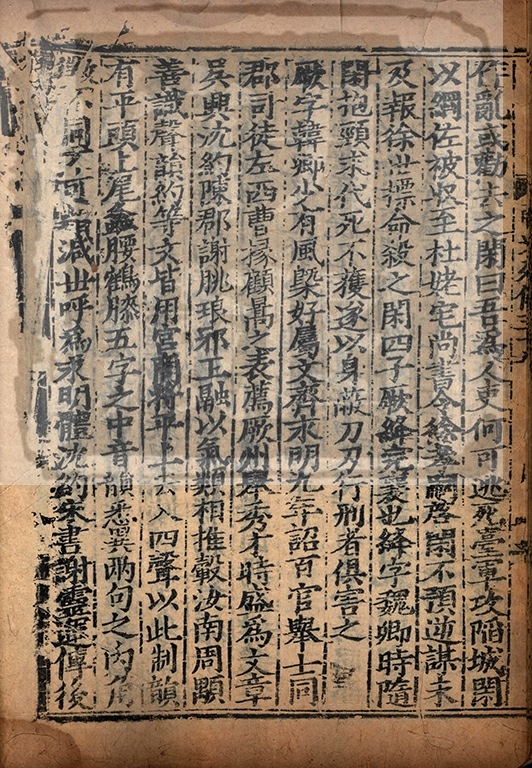 作亂或勸去之閑曰吾為人吏何可逃死臺軍攻陷城閑
以綱佐被収至杜姥宅尚書令徐孝嗣啓閑不預逆謀未
及報徐世摽命殺之閑四子厥絳完襄也絳字魏卿時隨
閑抱頸求代死不獲遂以身蔽刀刃行刑者俱害之
厥字韓卿少有風槩好屬文齊永明九年詔百官舉士同
郡司徒左西曹掾顧暠之表薦厥州舉秀才時盛為文章
吳興沈約陳郡謝朓琅邪王融以氣類相推轂汝南周顒
善識聲韻約等文皆用宮商將平上去入四聲以此制韻
有平頭上尾蠭腰鶴膝五字之中音韻悉異兩句之內角
不同不可增減世呼為永明體沈約宋書謝靈運傳後